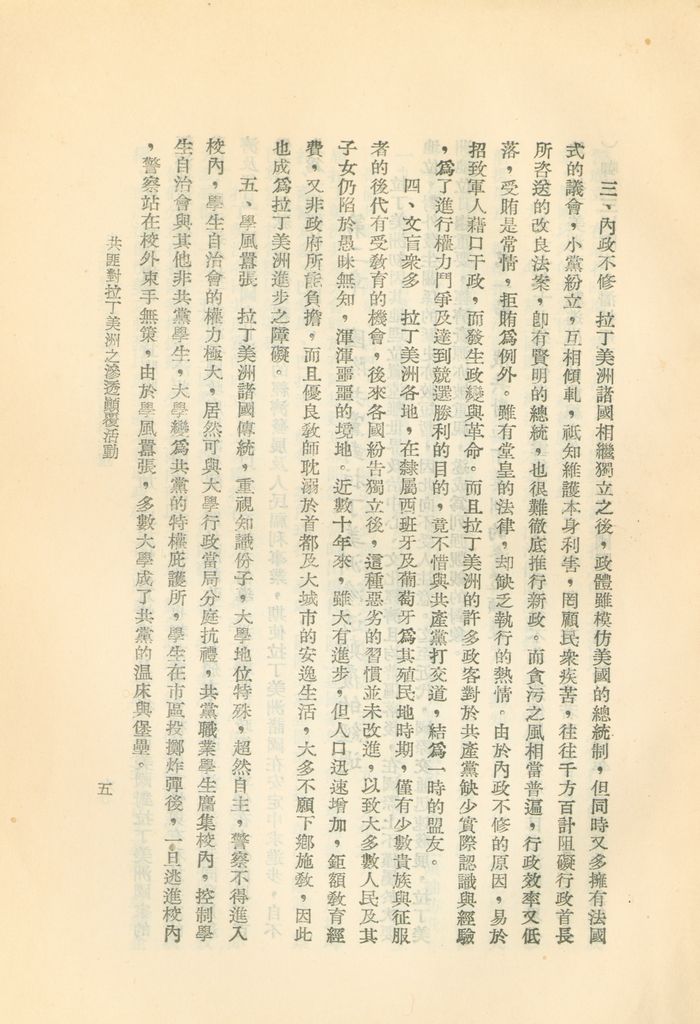 三、內政不修　拉丁美洲諸國相繼獨立之後，政體雖模仿美國的總統制，但同時又多擁有法國
式的議會，小黨紛立，互相傾軋，祗知維護本身利害，罔顧民衆疾苦，往往千方百計阻礙行政首長
所咨送的改良法案，卽有賢明的總統，也很難徹底推行新政。而貪污之風相當普遍，行政效率又低
落，受賄是常情，拒賄爲例外。雖有堂皇的法律，却缺乏執行的熱情。由於內政不修的原因，易於
招致軍人藉口干政，而發生政變與革命。而且拉丁美洲的許多政客對於共產黨缺少實際認識與經驗
，爲了進行權力鬥爭及達到競選勝利的目的，竟不惜與共產黨打交道，結爲一時的盟友。
四、文盲衆多　拉丁美洲各地，在隸屬西班牙及葡萄牙爲其殖民地時期，僅有少數貴族與征服
者的後代有受敎育的機會，後來各國紛告獨立後，這種惡劣的習慣並未改進，以致大多數人民及其
子女仍陷於愚昧無知，渾渾噩噩的境地。近數十年來，雖大有進步，但人口迅速增加，鉅額敎育經
費，又非政府所能負擔，而且優良敎師耽溺於首都及大城市的安逸生活，大多不願下鄕施敎，因此
也成爲拉丁美洲進步之障礙。
五、學風囂張　拉丁美洲諸國傳統，重視知識份子，大學地位特殊，超然自主，警察不得進入
校內，學生自治會的權力極大，居然可與大學行政當局分庭抗禮，共黨職業學生麕集校內，控制學
生自治會與其他非共黨學生，大學變爲共黨的特權庇護所，學生在市區投擲炸彈後，一旦逃進校內
，警察站在校外束手無策，由於學風囂張，多數大學成了共黨的温床與堡壘。
共匪對拉丁美洲之滲透顚覆活動
五